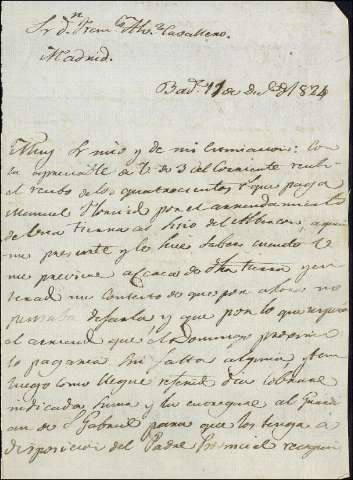 Sr. Dn. Franco. Alv. Cavallero.
Madrid.
Bad. 11 de de 1824
Muy Sr. mio y de mi estimacion: Con
la apreciable de V. de 3 del Corriente recibi
el recibo de los quatrocientos rs. que paga
Manuel por el arrendamiento
de la tierra al Sitio del
me presenté y le hice saber cuanto V.
me previene acerca de dha. tierra y en
terad me contesto de que por ahora no
pensaba dejarla y que por lo que respecta
al arriendo que el domingo proximo
lo pagaria sin falta alguna y tan
luego como llegue referido dia cobrare
indicada suma y la entregaré al Guardi
an de S. Gabriel para que los tenga a
disposicion del Padre Provincial